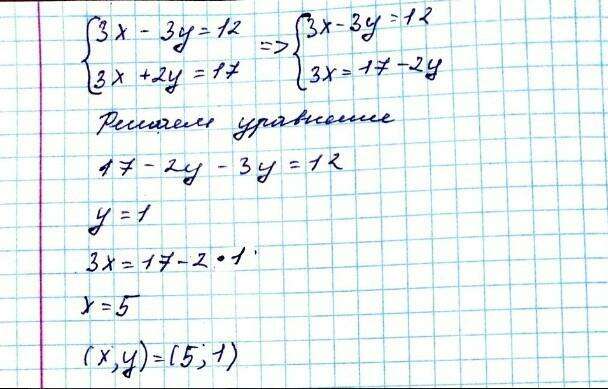 {3x - 3y = 12 => {3x - 3y = 12
{3x + 2y = 17 {3x = 17 - 2y
Решаем уравнение
17 - 2y - 3y = 12
y = 1
3x = 17 - 2 • 1
x = 5
(x; y) = (5; 1)